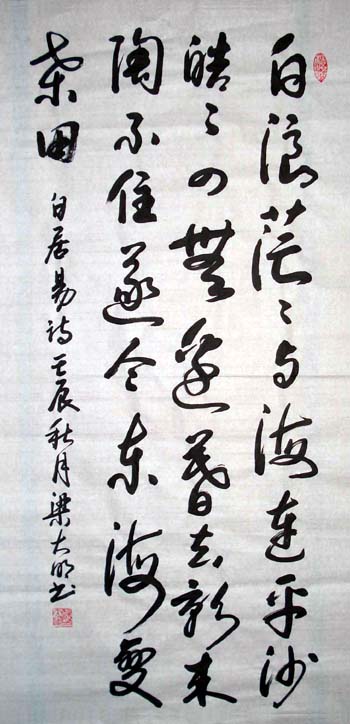 白浪茫〻与海連平沙
皓〻四無邊暮去朝来
陶不住遂令东海变
桑田
白居易诗壬辰秋月梁大明书